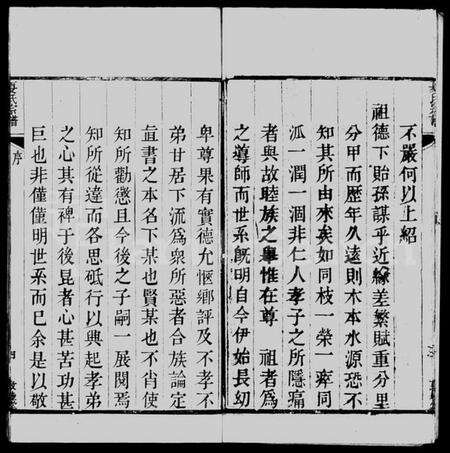 不嚴何以上紹
祖德下貽孫謀乎近緣差繁賦重分里
分甲而歷年久遠則木本水源恐不
知其所由來矣如同枝一榮一瘁同
派一潤一涸非仁人孝子之所隱痛
者與故睦族之舉惟在尊 祖者爲
之導師而世系旣明自今伊始長幼
卑尊果有實德允愜鄉評及不孝不
弟甘居下流爲衆所惡者合族論定
直書之本名下某也賢某也不肖使
知所勸懲且今後之子嗣一展閱焉
知所從違而各思砥行以興起孝弟
之心其有裨于後昆者心甚苦功甚
巨也非僅僅明世系而已余是以敬
序